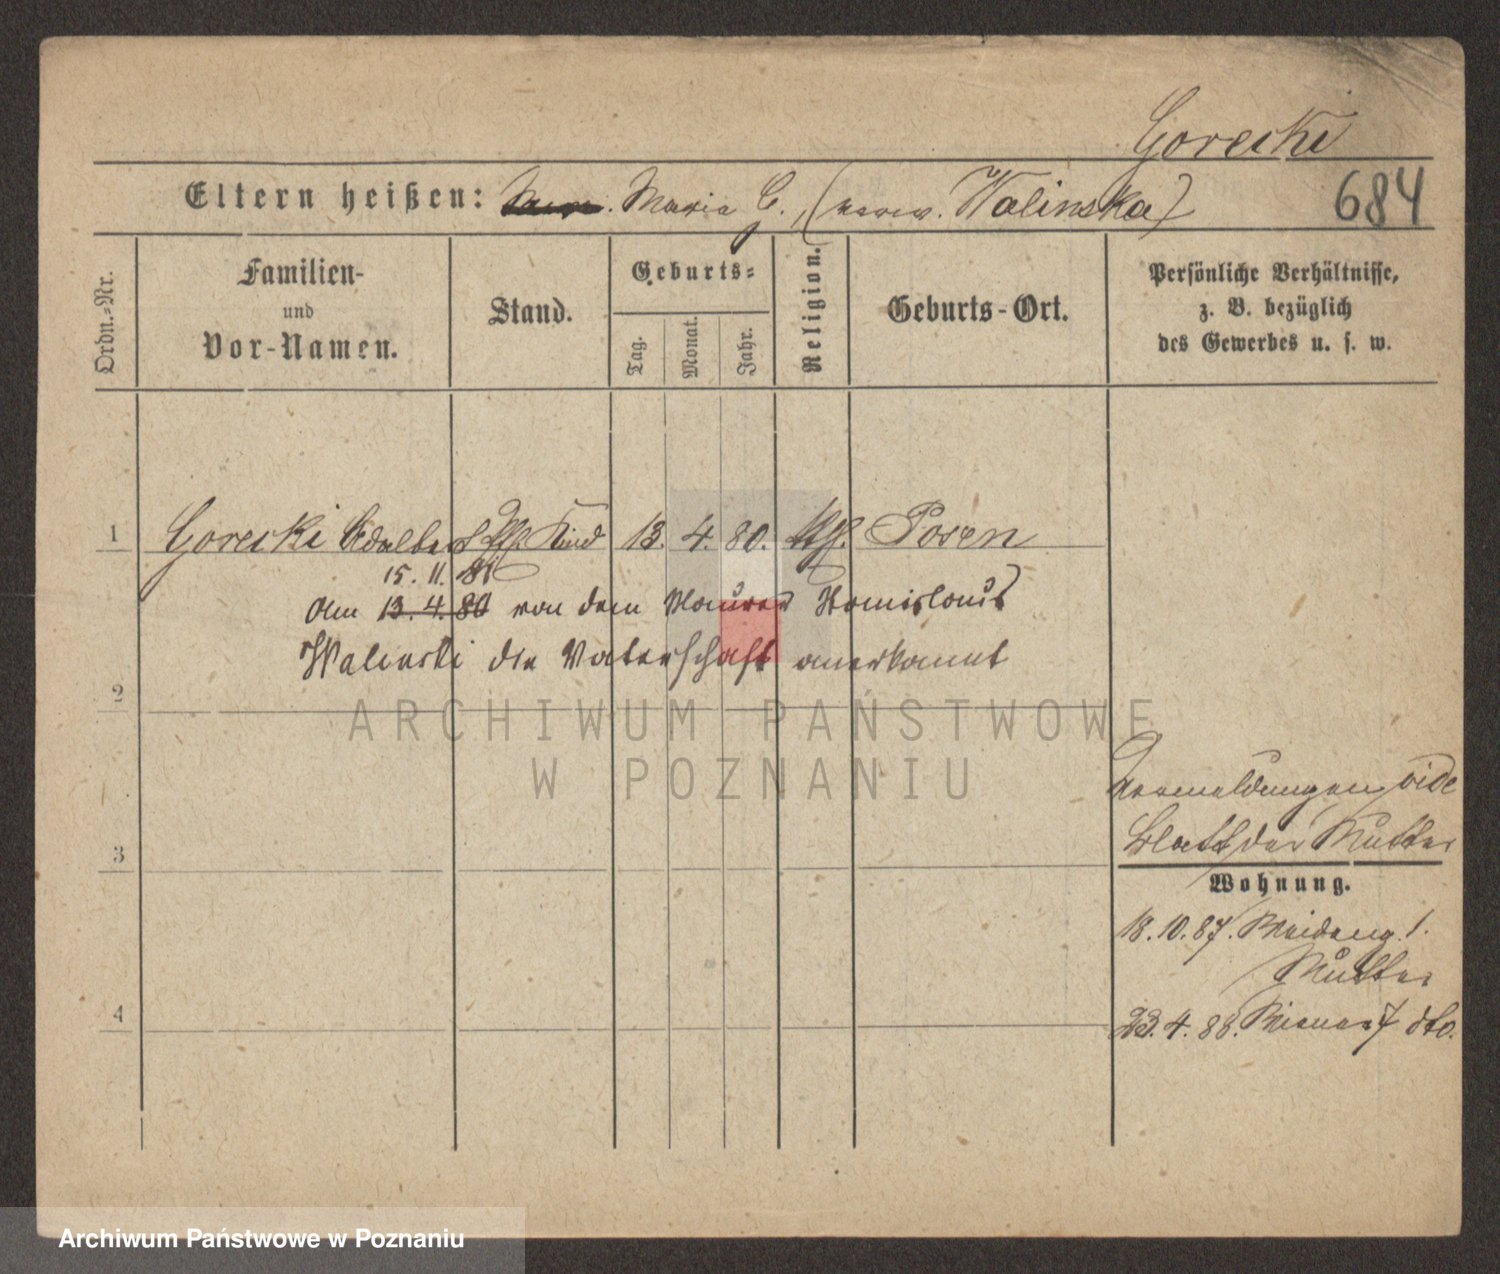 Gorecki
Eltern heißen: Maria G., (verw. Walinska)
684
Ordn.-Nr.
Familien-
und
Vor-Namen.
Stand.
Geburts-
Tag.
Monat.
Jahr.
Religion.
Geburts-Ort.
Persönliche Verhältnisse,
z. B. bezüglich
des Gewerbes u. s. w.
1 Gorecki Edalbert Kind 13. 4. 80. kth. Posen
15. 11. 81
Am 13. 4. 80 von dem Maurer Stanislaus
Walinski die Vaterschaft anerkannt
2
ARCHIWUM PAŃSTWOWE
W POZNANIU
Anmeldungen vide
Blatt der Mutter
3
Wohnung.
18. 10. 87. 1.
Mutter
4
23. 4. 88. 7 dto.
Archiwum Państwowe w Poznaniu